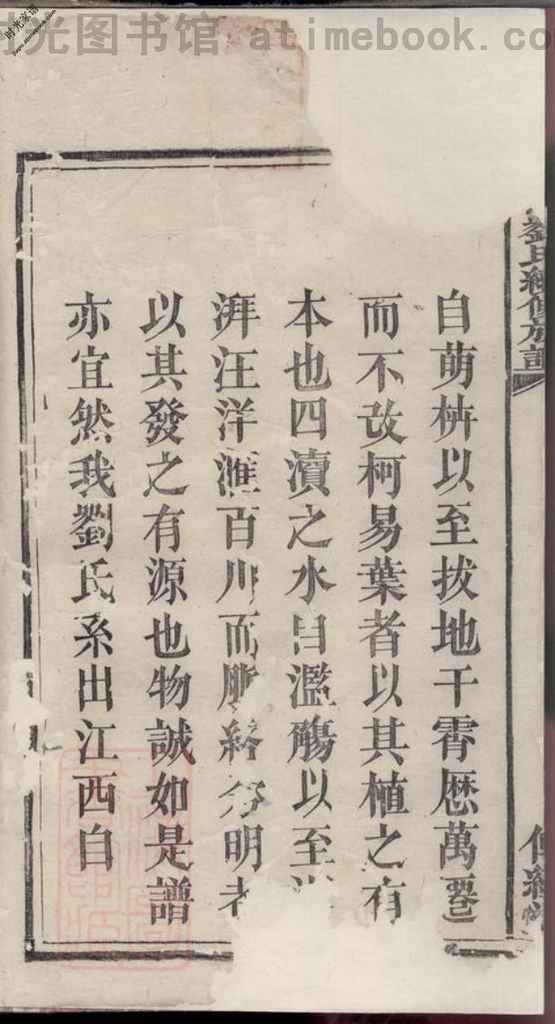 时光图书馆 atimebook.co
时光家谱
劉氏續修族譜
自萌枿以至拔地干霄歴萬
而不改柯易葉者以其植之有
本也四瀆之水自濫觴以至
湃汪洋滙百川而脈絡分明者
以其發之有源也物誠如是譜
亦宜然我劉氏系出江西自